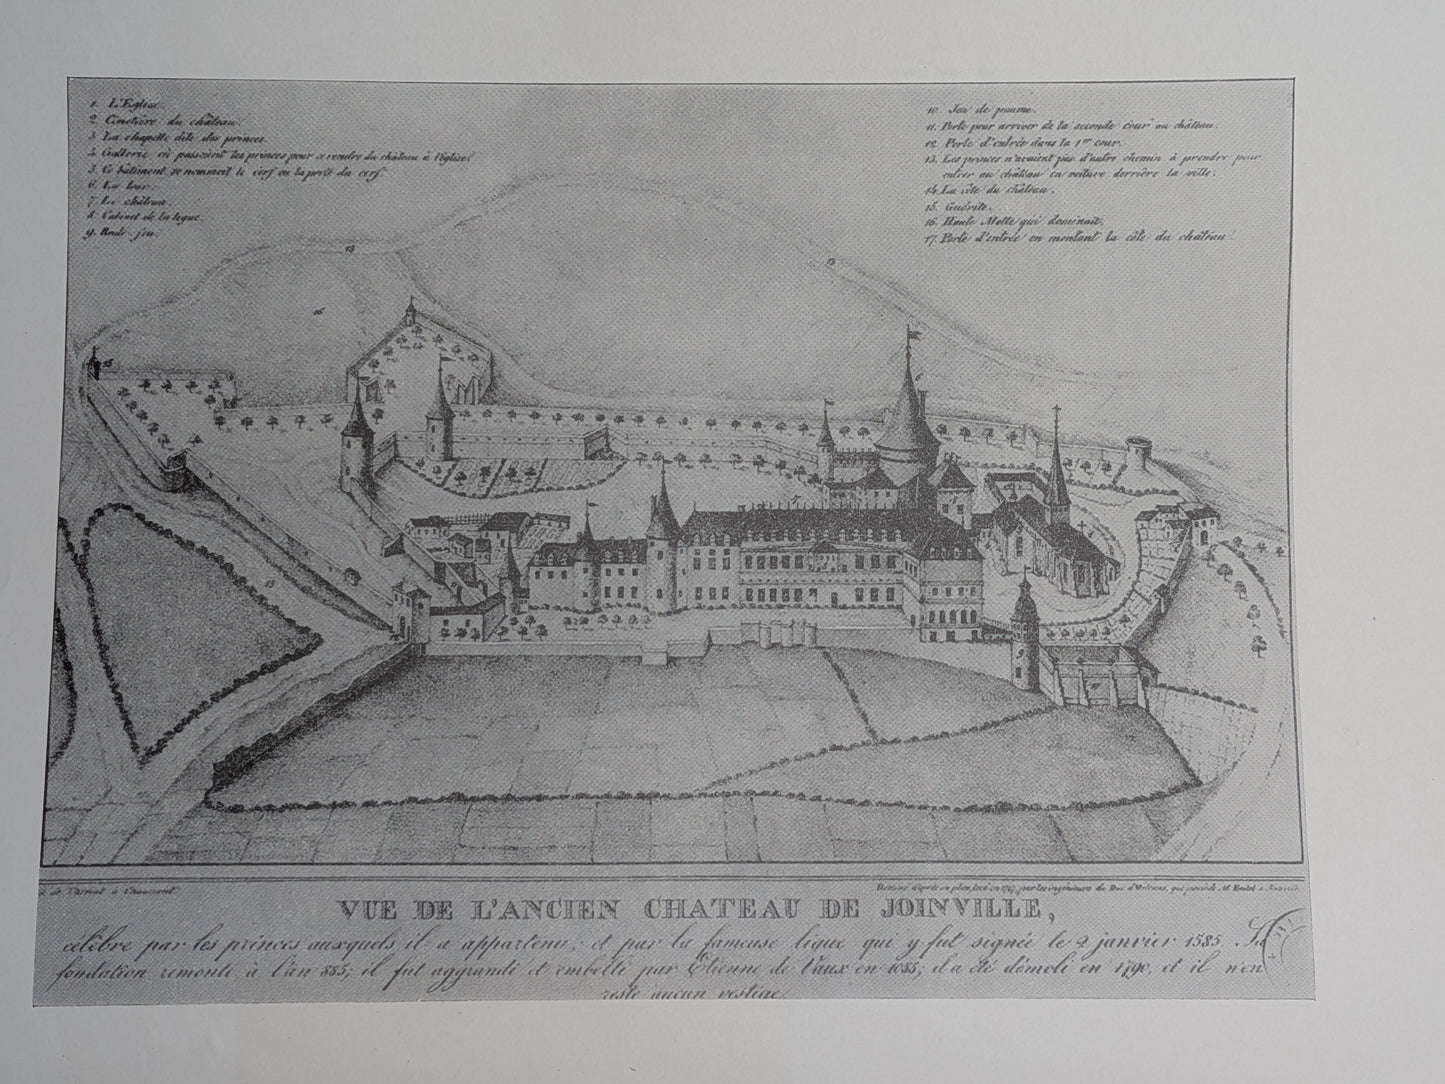 1. L'Eglise.
2. Cimetière du château.
3. La chapelle dite des princes.
4. Gallerie où passoient les princes pour ce rendre du château à l'église.
5. Ce bâtiment se nommoit le cerf ou la porte du cerf
6. La tour.
7. Le château.
8. Cabinet de la ligue.
9. Boute-feu.
10. Jeu de paume.
11. Porte pour arriver de la seconde cour au château.
12. Porte d'entrée dans la 1ere cour.
13. Les princes n'avaient pas d'autre chemin à prendre pour
entrer au château en voiture derrière la ville.
14. La côte du château.
15. Guérite.
16. Haute Motte qui dominait.
17. Porte d'entrée en montant la côte du château.
13
13
16
15
6
7
13
à Chaumont
Dessiné d'après un plan, levé en 1747, par les ingénieurs du Duc d'Orléans, que possède M.
VUE DE L'ANCIEN CHATEAU DE JOINVILLE,
célèbre par les princes auxquels il a appartenu; et par la fameuse ligue qui y fut signée le 2 janvier 1585. Sa
fondation remonte à l'an 885; il fut aggrandi et embelli par Etienne de Vaux en 1085; il a été démoli en 1790, et il n'en
reste aucun vestige.